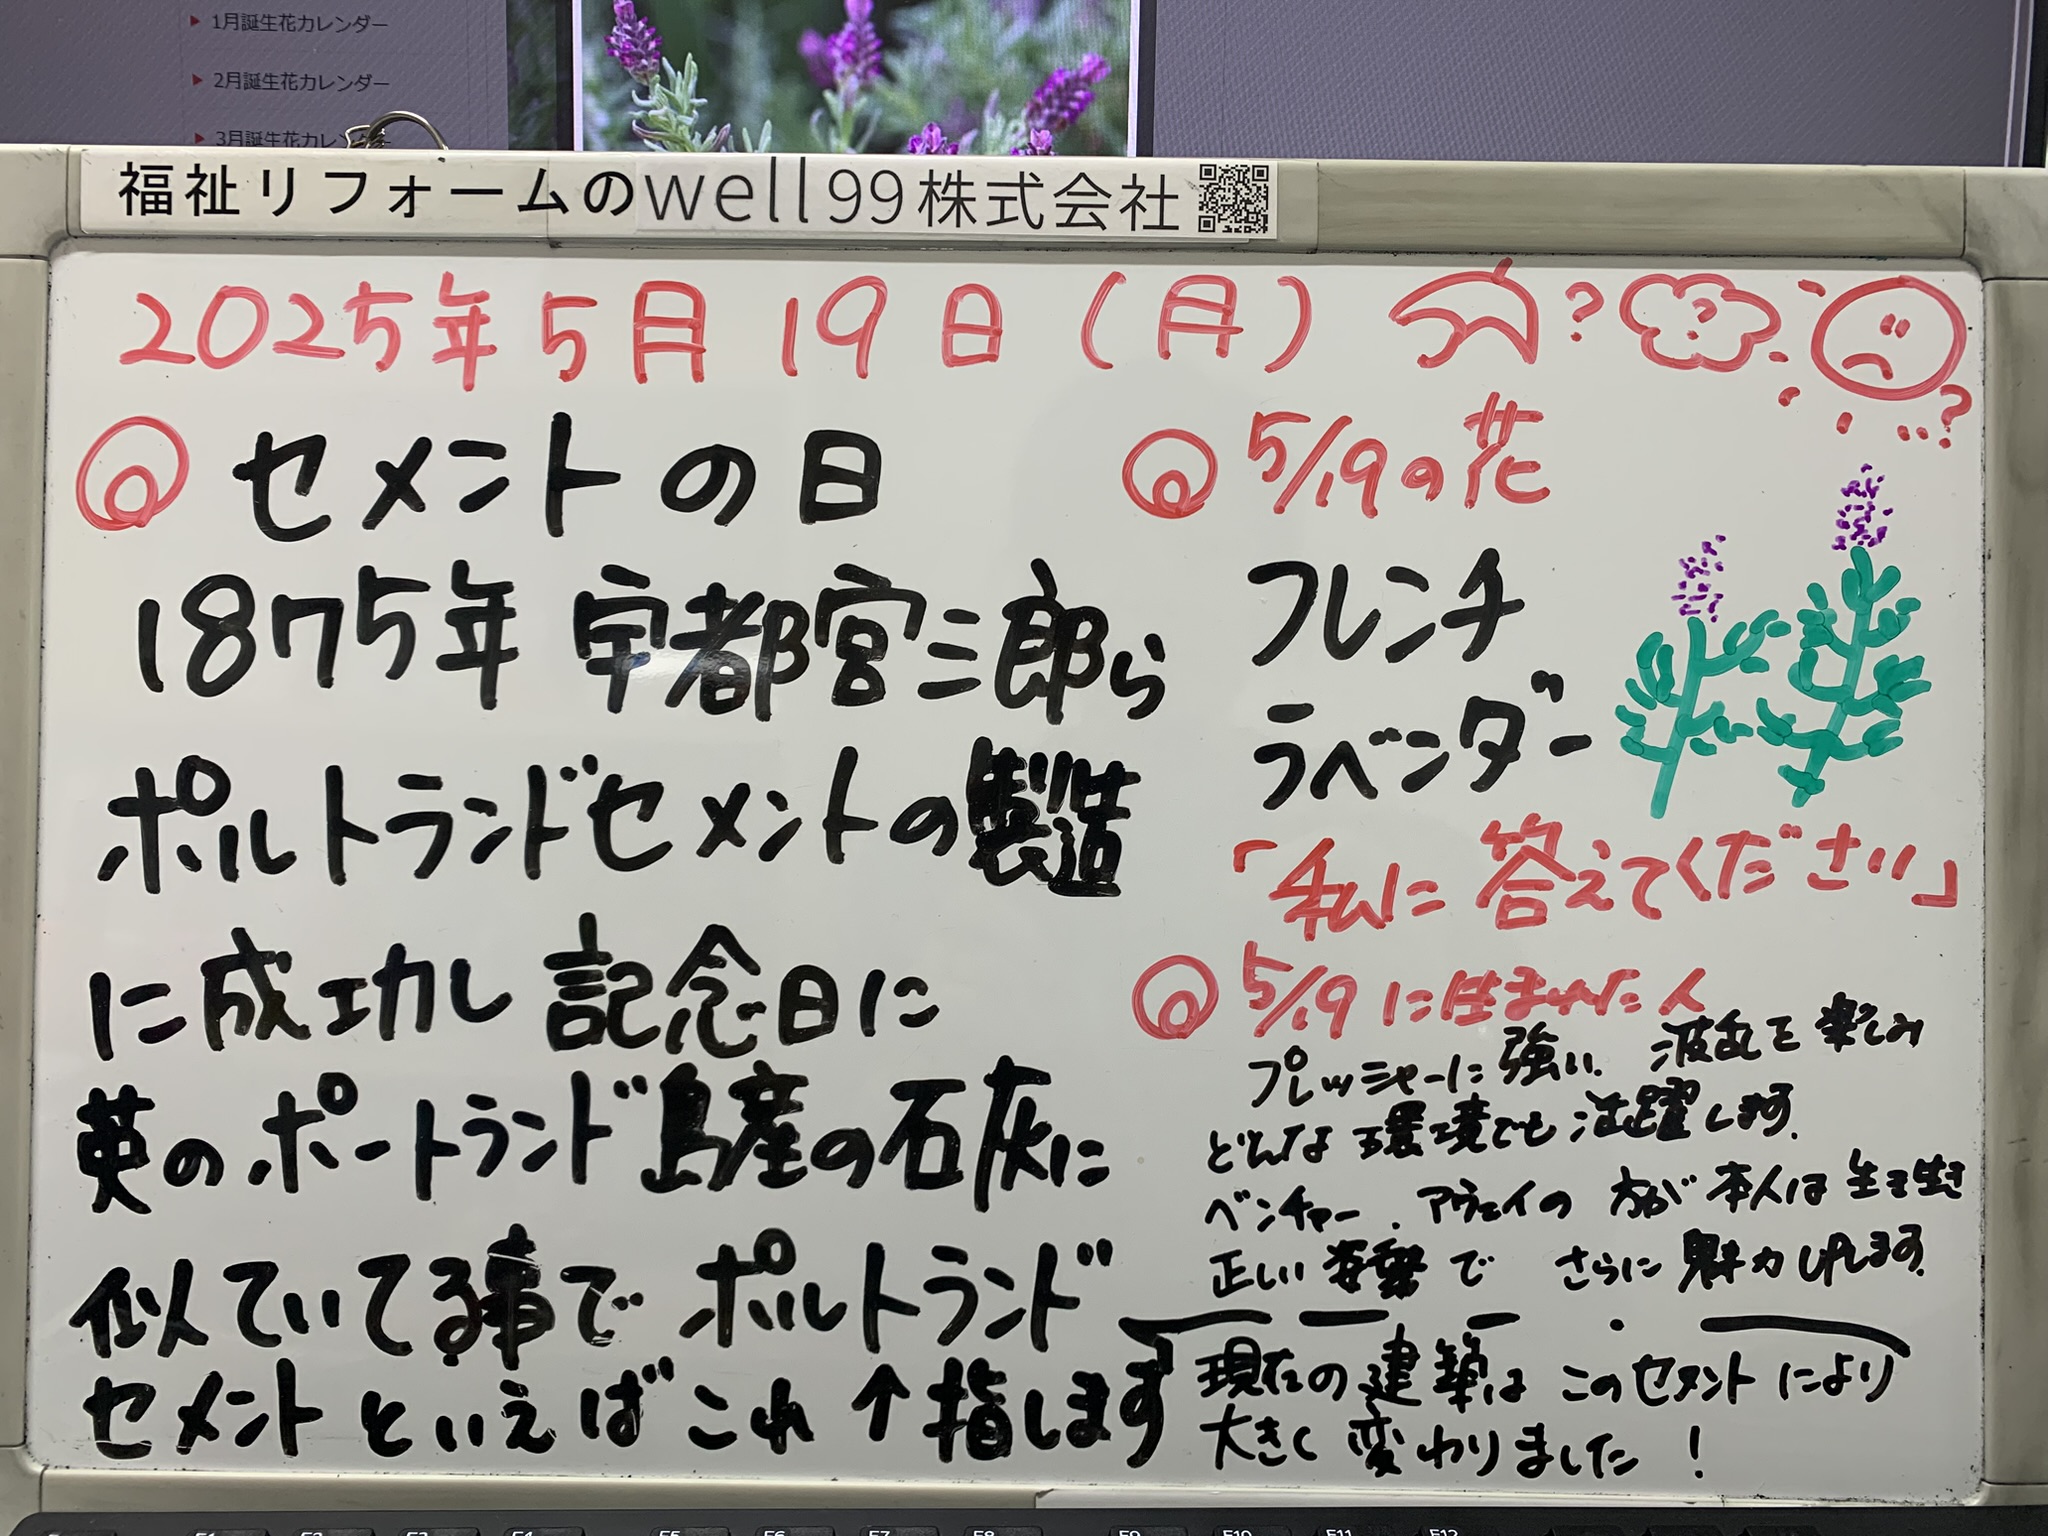 1月誕生花カレンダー
2月誕生花カレンダー
3月誕生花カレンダー
福祉リフォームのwell99株式会社
2025年5月19日(月) ? ? ?
セメントの日
1875年宇都宮三郎ら
ポルトランドセメントの製造
に成功し記念日に
英のポートランド島産の石灰に
似ている事でポルトランド
セメントといえばこれ↑指します
5/19の花
フレンチ
ラベンダー
「私に答えてください」
5/19に生まれた人
プレッシャーに強い、波乱を楽しみ
どんな環境でも活躍します。
ベンチャー、アウェイの方が本人は生き生き
正しい姿勢で さらに魅力UPします。
現在の建築はこのセメントにより
大きく変わりました!
F1 F2 F3 F4 F5 F6 F7 F8 F9 F10 F11 F12